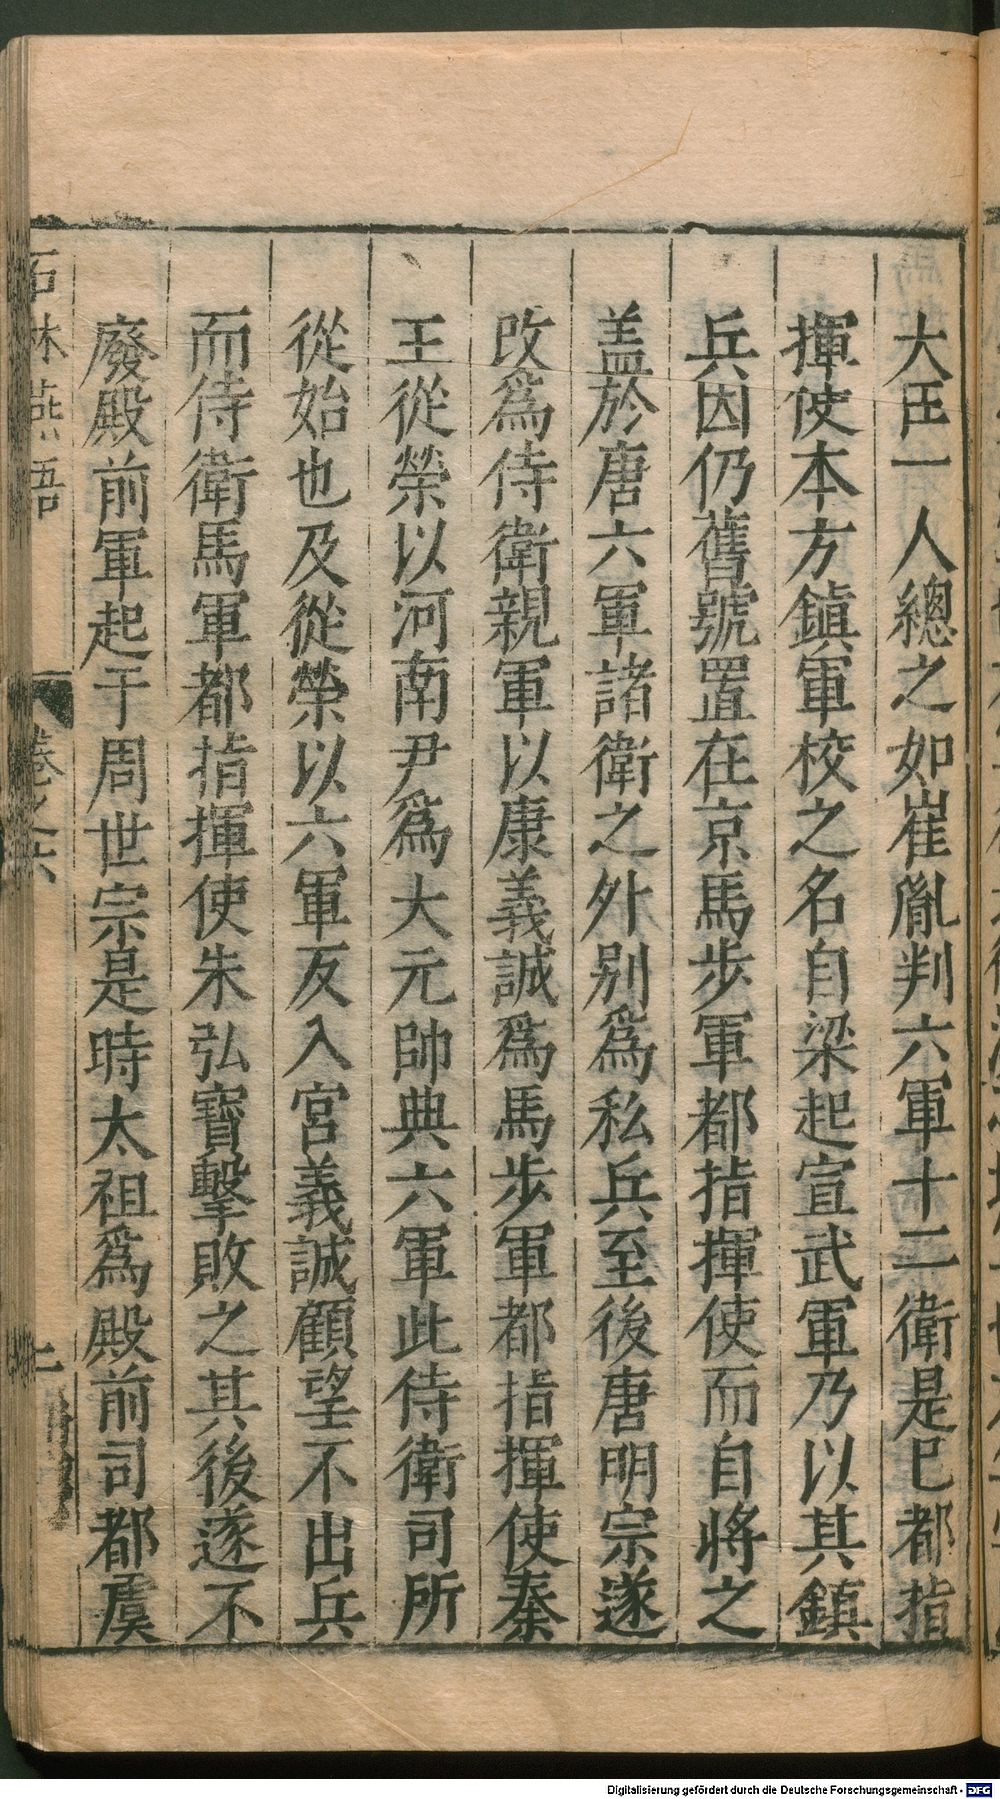 大臣一人總之如崔胤判六軍十二衛是已都指
揮使本方鎮軍校之名自梁起宣武軍乃以其鎮
兵因仍舊號置在京馬步軍都指揮使而自將之
盖於唐六軍諸衛之外别為私兵至後唐明宗遂
改為侍衛親軍以康義誠為馬步軍都指揮使秦
王從榮以河南尹為大元帥典六軍此侍衛司所
從始也及從榮以六軍反入宮義誠顧望不出兵
而侍衛馬軍都指揮使朱弘寶擊敗之其後遂不
廢殿前軍起于周世宗是時太祖為殿前司都虞
石林燕語 卷之六 二
Digitalisierung gefördert durch die Deutsche Forschungsgemeinschaft - DFG